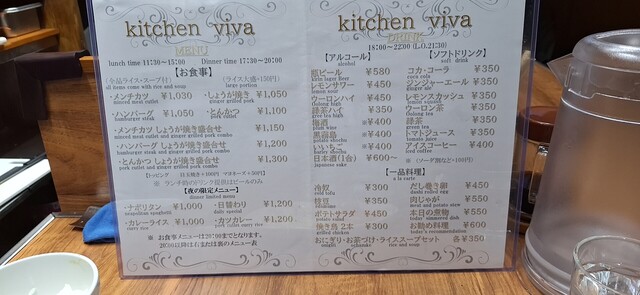 kitchen viva
MENU
lunch time 11:30~15:00 Dinner time 17:30~20:00
【お食事】
(全品ライス・スープ付) (ライス大盛+150円)
all items come with rice and soup large portion
・メンチカツ ¥1,030 ・しょうが焼き ¥1,050
minced meat cutlet ginger grilled pork
・ハンバーグ ¥1,050 ・とんかつ ¥1,100
hamburg steak pork cutlet
・メンチカツ しょうが焼き盛合せ ¥1,150
minced meat cutlet and ginger grilled pork combo
・ハンバーグ しょうが焼き盛合せ ¥1,200
hamburg steak and ginger grilled pork combo
・とんかつ しょうが焼き盛合せ ¥1,300
pork cutlet and ginger grilled pork combo
【夜の限定メニュー】
dinner limited menu
・ナポリタン ¥1,000 ・日替わり ¥1,000
neapolitan spaghetti daily special
・カレーライス ¥1,000 ・カツカレー ¥1,200
curry rice pork cutlet curry rice
※ お食事メニューは20:00までとなります。
20:00以降はおまたは裏のメニュー表
kitchen viva
DRINK
18:00~22:00 (L.O.21:30)
【アルコール】 【ソフトドリンク】
alcohol soft drink
瓶ビール ¥580 コカ・コーラ ¥350
kirin lager beer coca cola
レモンサワー ¥450 ジンジャーエール ¥350
lemon sour ginger ale
ウーロンハイ ¥450 レモンスカッシュ ¥350
oolong high lemon squash
緑茶ハイ ¥350
梅酒 ¥400 緑茶 ¥350
plum wine green tea
¥400 トマトジュース ¥350
tomato juice
いいちこ ¥400 アイスコーヒー ¥400
iced coffee
日本酒(1合) ¥600~
japanese sake
【一品料理】
a la carte
冷奴 ¥300 だし巻き卵 ¥450
cold tofu
枝豆 ¥350 肉じゃが ¥550
meat and potato stew
ポテトサラダ ¥450 本日の煮物 ¥550
potato salad
焼き鳥 2本 ¥300 お勧め料理 ¥600
grilled chicken today's recommendation
おにぎり・お茶づけ・ライススープセット 各¥350
onigiri ochazuke rice and soup